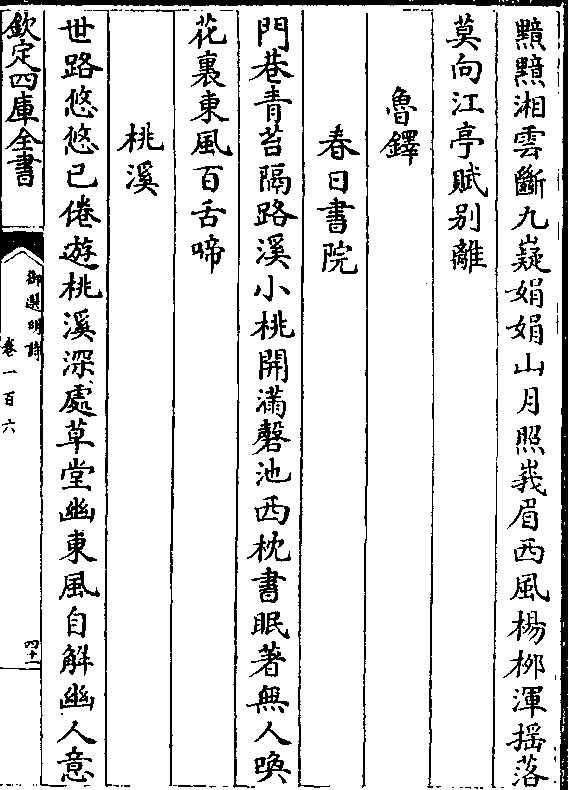 黯黯湘雲斷九嶷娟娟山月照峩眉西風楊栁渾揺落
莫向江亭賦别離
魯鐸
春日書院
門巷青苔隔路溪小桃開滿磬池西枕書眠著無人喚
花裏東風百舌啼
桃溪
世路悠悠已倦遊桃溪深處草堂幽東風自解幽人意
欽定四庫全書
御選明詩
卷一百六
四十一